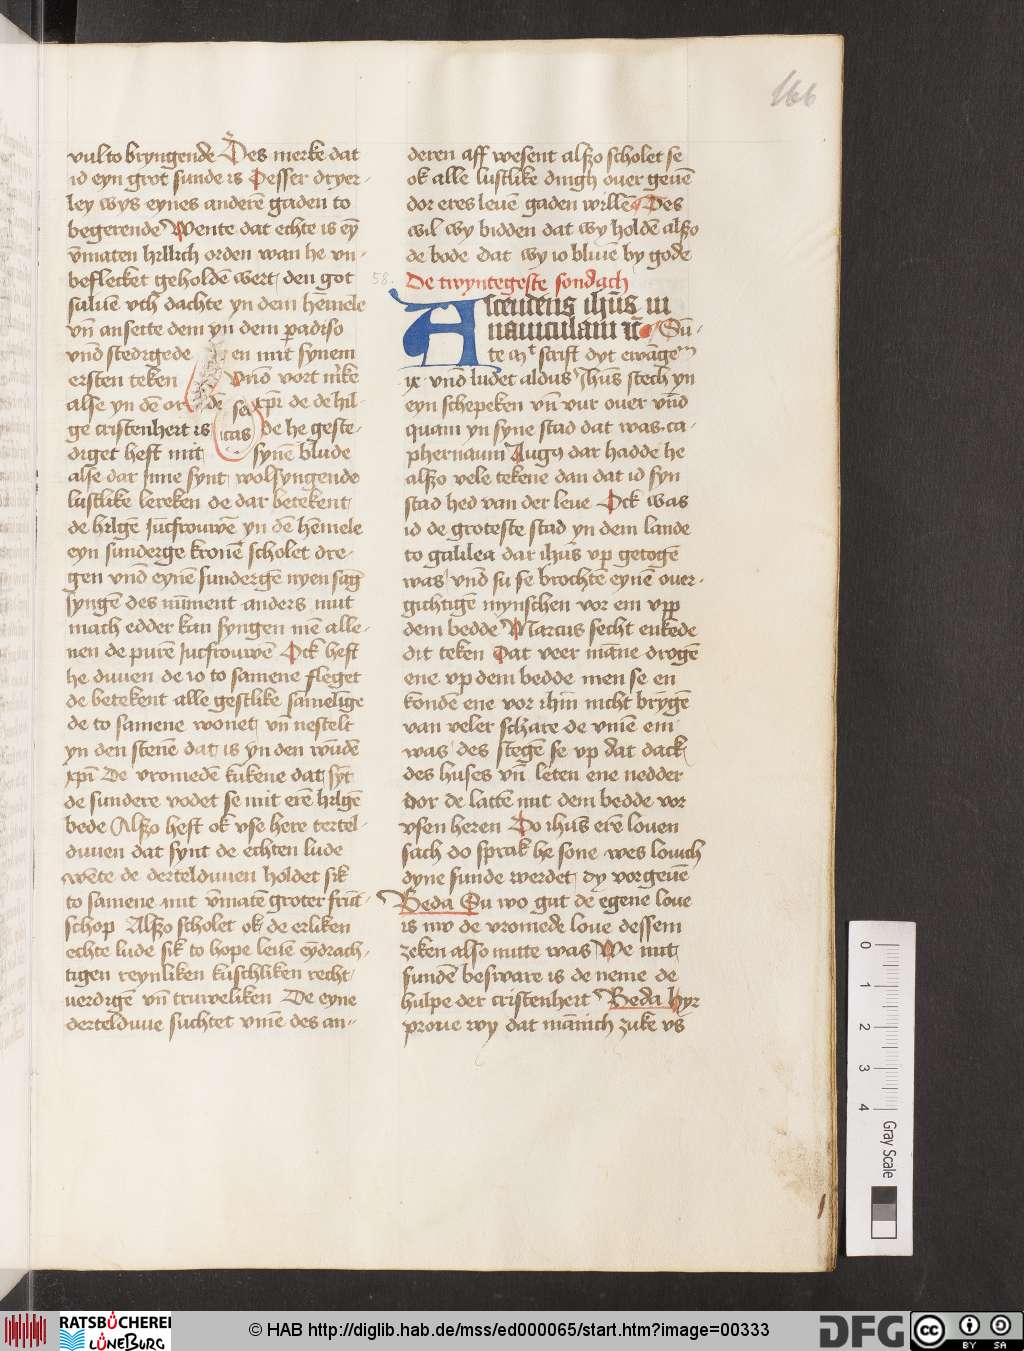 166
vul to bryngende Des merke dat
id eyn grot sunde is Desser dryer-
ley wys eynes anderē gaden to
begerende Wente dat echte is eȳ
v̄maten hillich orden wan he vn-
beflecket geholdē wert den got
saluē vth dachte yn dem hēmele
vn̄ ansette dem yn dem ꝑadiso
vnd̄ stedegede en mit synem
ersten teken Vnd̄ vort m̄ke
alse yn dē or de sex xp̄i de de hil-
ge cristenhert is icas de he geste-
diget heft mit synē blude
alse dar jnne synt wolsyngende
lustlike lereken de dar betekent
de hilgē jūcfrouwē yn dē hēmele
eyn sunderge kronē scholet dre-
gen vnd̄ eynē sundergē nyen sāg
syngē des nūment anders mut
mach edder kan syngen mē alle-
nen de purē jūcfrouwē Ock heft
he duuen de io to samene fleget
de betekent alle gestlike sāmelīge
de to samene wonet vn̄ nestelt
yn den stenē dat is yn den wūdē
xp̄i De vromedē kukene dat sȳt
de sundere vodet se mit erē hilgē
bede Alßo heft ok vse here tertel-
duuen dat synt de echten lude
wēte de dertelduuen holdet sik
to samene mit v̄matē groter frūt-
schop Alßo scholet ok de erliken
echte lude sik to hope leuē eȳdrach-
tigen reynliken kuschliken recht
uerdigē vn̄ truweliken De eyne
dertelduue suchtet vm̄e des an-
deren aff wesent alßo scholet se
ok alle lustlike dingh ouer geuē
dor eres leuē gaden willē Des
wil wy bidden dat wy holdē alßo
de bode dat wy io bliuē by gode
58. De twyntegeste sondach
Ascendens ih̄us in
nauiculam ꝛc̄ Sū-
te mt scrift dyt ewāge
ix vnd̄ ludet aldus Jhūs stech yn
eyn schepeken vn̄ vur ouer vnd̄
quam yn syne stad dat was ca-
phernaum Aug9 dar hadde he
alßo vele tekene dan dat id syn
stad hed van der leue Ock was
id de groteste stad yn dem lande
to galilea dar ih̄us vp getogē
was vnd̄ su se brochtē eynē ouer-
gichtigē mynschen vor em vpp
dem bedde Marcus secht enkede
dit teken Dat veer māne drogē
ene vp dem bedde men se en
kondē ene vor ihm nicht brȳgē
van veler schare de vm̄e em
was des stegē se vp dat dack
des huses vn̄ leten ene nedder
dor de lattē mit dem bedde vor
vsen heren Do ihūs erē louen
sach do sprak he sone wes louich
dyne sunde werdet dy vorgeuē
Beda Su wo gut de egene loue
is nw de vromede loue dessem
zeken also nutte was We mit
sundē besware is de neme de
hulpe der cristenhert Beda Hyr
proue wy dat mānich zuke vs
0
1
2
3
4
Gray Scale
RATSBÜCHEREI
LÜNEBURG
© HAB http://diglib.hab.de/mss/ed000065/start.htm?image=00333
DFG
cc
BY SA